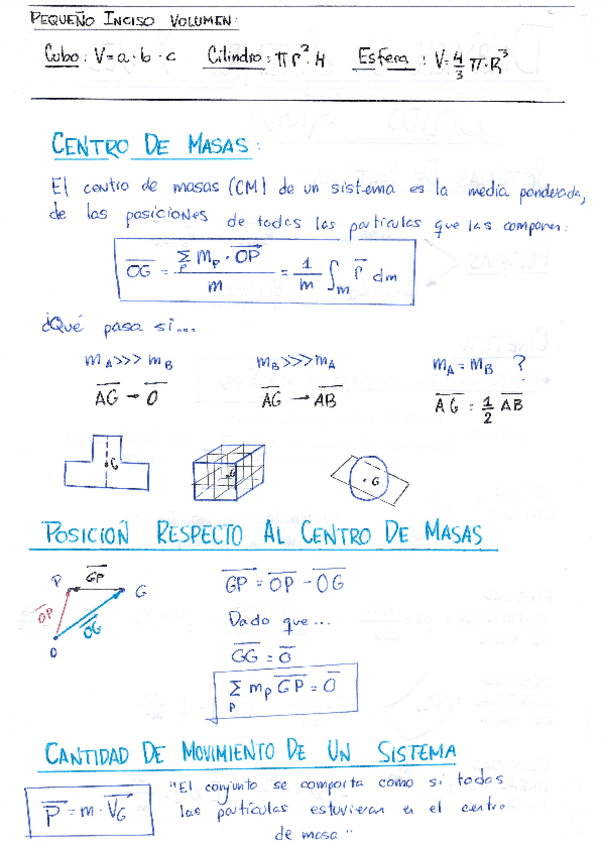 PEQUEÑO INCISO VOLUMEN:
Cubo: V=a·b·c Cilindro: πr²·H Esfera: V=4/3 π·R³
CENTRO DE MASAS:
El centro de masas (CM) de un sistema es la media ponderada,
de las posiciones de todas las partículas que las componen:
OG = Σ_P m_P·OP / m = 1/m ∫_m r dm
¿Qué pasa si...
m_A>>>m_B m_B>>>m_A m_A=m_B ?
AG→O AG→AB AG=1/2 AB
G G G
POSICIÓN RESPECTO AL CENTRO DE MASAS
P GP G GP = OP - OG
OP OG Dado que...
O GG = O
Σ_P m_P GP = O
CANTIDAD DE MOVIMIENTO DE UN SISTEMA
P = m·V_G "El conjunto se comporta como si todas
las partículas estuvieran en el centro
de masa"